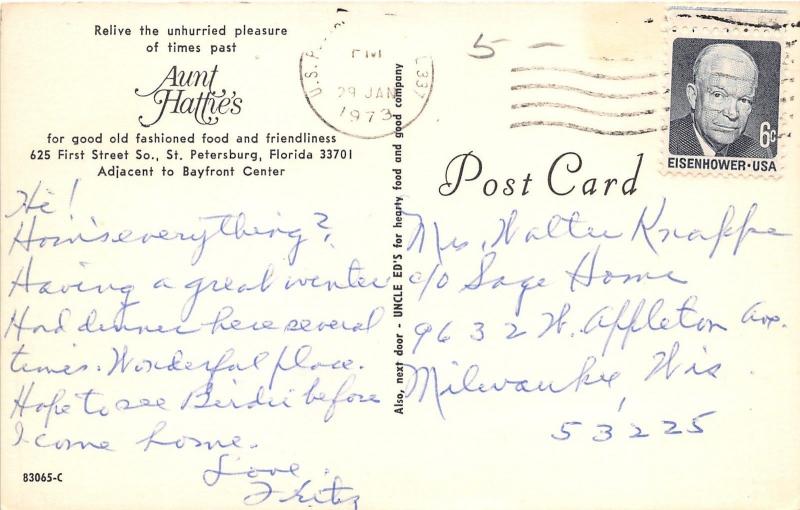 Relive the unhurried pleasure
of times past
Aunt
Hattie's
for good old fashioned food and friendliness
625 First Street So., St. Petersburg, Florida 33701
Adjacent to Bayfront Center
Hi!
How's everything?
Having a great winter
Had dinner here several
times. Wonderful place.
Hope to see Birdie before
I come home.
Love.
Fritz
83065-C
Also, next door - UNCLE ED'S for hearty food and good company
U.S. P
PM
29 JAN
1973
337
5 -
EISENHOWER·USA
6c
Post Card
Mrs. Walter Knappe
c/o Sage Home
9632 W. Appleton Ave.
Milwaukee, Wis
53225